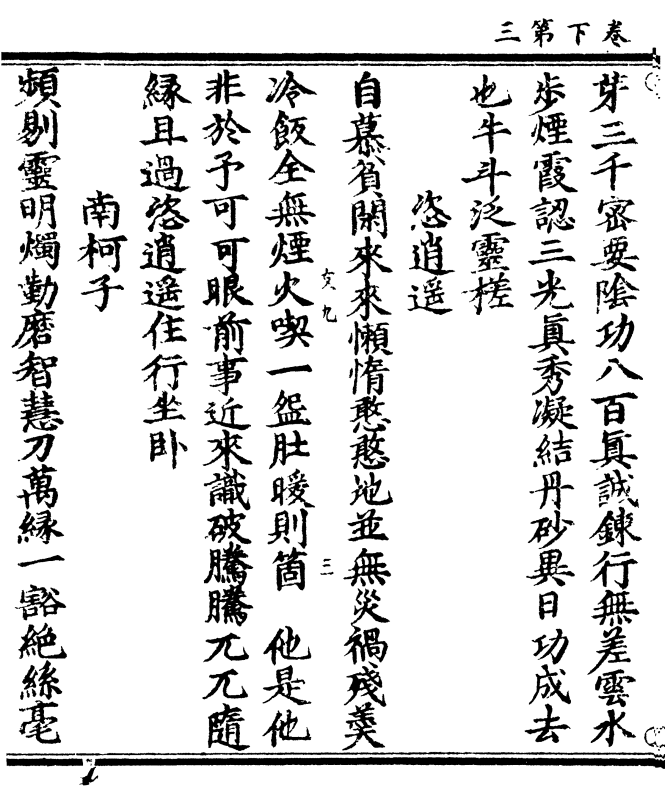 卷下第三
芽三千宻要陰功八百眞誠鍊行無差雲水
歩煙霞認三光眞秀凝結丹砂異日功成去
也牛斗泛靈槎
恣逍遥
自慕貧閑來來懶惰憨憨地並無災禍殘羹
冷飯全無煙火喫一盌肚暖則箇　他是他
非於予可可眼前事近來識破騰騰兀兀隨
縁且過恣逍遥住行坐卧
南柯子
頻剔靈明燭勤磨智慧刀萬縁一豁絶絲毫